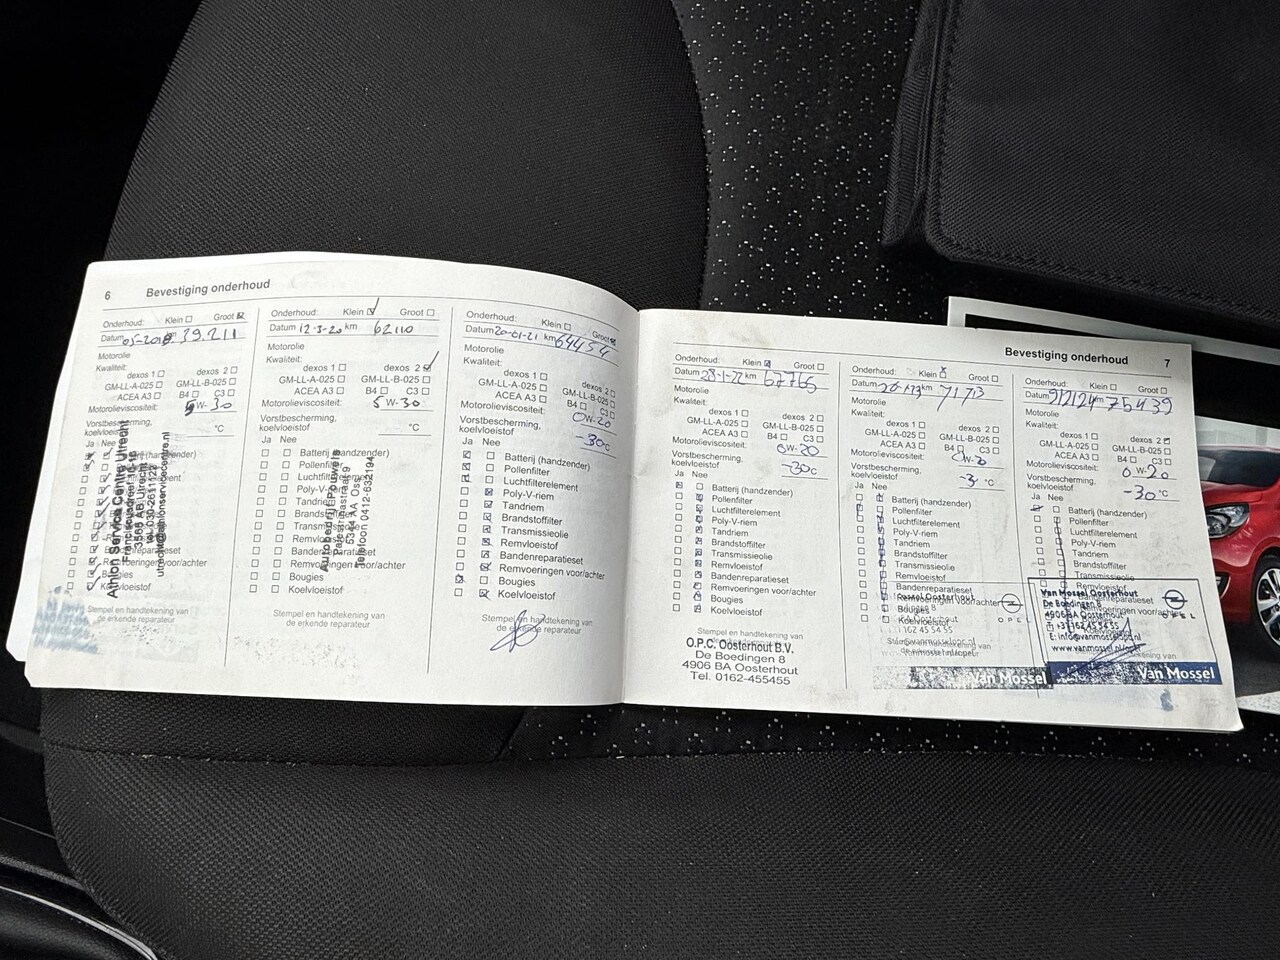 6 Bevestiging onderhoud
Onderhoud: Klein Groot
Datum 05-2018 km 39.211
Motorolie
Kwaliteit:
dexos 1 dexos 2
GM-LL-A-025 GM-LL-B-025
ACEA A3 B4 C3
Motorolieviscositeit: 5W-30
Vorstbescherming,
koelvloeistof °C
Ja Nee
Batterij (handzender)
Koelvloeistof
Athlon Service Centre Utrecht
3566 AB Utrecht
Stempel en handtekening van
de erkende reparateur
Onderhoud: Klein Groot
Datum 12-3-20 km 62110
Motorolie
Kwaliteit:
dexos 1 dexos 2
GM-LL-A-025 GM-LL-B-025
ACEA A3 B4 C3
Motorolieviscositeit: 5W-30
Vorstbescherming,
koelvloeistof °C
Ja Nee
Batterij (handzender)
Pollenfilter
Luchtfilterelement
Poly-V-riem
Tandriem
Brandstoffilter
Transmissieolie
Remvloeistof
Bandenreparatieset
Remvoeringen voor/achter
Bougies
Koelvloeistof
Autobedrijf Pouwels
5344 AA Oss
Telefoon 0412-632194
Stempel en handtekening van
de erkende reparateur
Onderhoud: Klein Groot
Datum 20-01-21 km 64454
Motorolie
Kwaliteit:
dexos 1 dexos 2
GM-LL-A-025 GM-LL-B-025
ACEA A3 B4 C3
Motorolieviscositeit: 0W-20
Vorstbescherming,
koelvloeistof -30°C
Ja Nee
Batterij (handzender)
Pollenfilter
Luchtfilterelement
Poly-V-riem
Tandriem
Brandstoffilter
Transmissieolie
Remvloeistof
Bandenreparatieset
Remvoeringen voor/achter
Bougies
Koelvloeistof
Stempel en handtekening van
de erkende reparateur
Bevestiging onderhoud 7
Onderhoud: Klein Groot
Datum 28-1-22 km 67765
Motorolie
Kwaliteit:
dexos 1 dexos 2
GM-LL-A-025 GM-LL-B-025
ACEA A3 B4 C3
Motorolieviscositeit: 0W-20
Vorstbescherming,
koelvloeistof -30°C
Ja Nee
Batterij (handzender)
Pollenfilter
Luchtfilterelement
Poly-V-riem
Tandriem
Brandstoffilter
Transmissieolie
Remvloeistof
Bandenreparatieset
Remvoeringen voor/achter
Bougies
Koelvloeistof
Stempel en handtekening van
O.P.C. Oosterhout B.V.
De Boedingen 8
4906 BA Oosterhout
Tel. 0162-455455
Onderhoud: Klein Groot
Datum km 71713
Motorolie
Kwaliteit:
dexos 1 dexos 2
GM-LL-A-025 GM-LL-B-025
ACEA A3 B4 C3
Motorolieviscositeit: 0W-20
Vorstbescherming,
koelvloeistof °C
Ja Nee
Batterij (handzender)
Pollenfilter
Luchtfilterelement
Poly-V-riem
Tandriem
Brandstoffilter
Transmissieolie
Remvloeistof
Bandenreparatieset
Remvoeringen voor/achter
Bougies
Koelvloeistof
OPEL
Van Mossel
Onderhoud: Klein Groot
Datum 9/2/24 km 75439
Motorolie
Kwaliteit:
dexos 1 dexos 2
GM-LL-A-025 GM-LL-B-025
ACEA A3 B4 C3
Motorolieviscositeit: 0W-20
Vorstbescherming,
koelvloeistof -30°C
Ja Nee
Batterij (handzender)
Pollenfilter
Luchtfilterelement
Poly-V-riem
Tandriem
Brandstoffilter
Transmissieolie
Remvloeistof
Bandenreparatieset
Van Mossel Oosterhout
De Boedingen 8
4906 BA Oosterhout
OPEL
Van Mossel